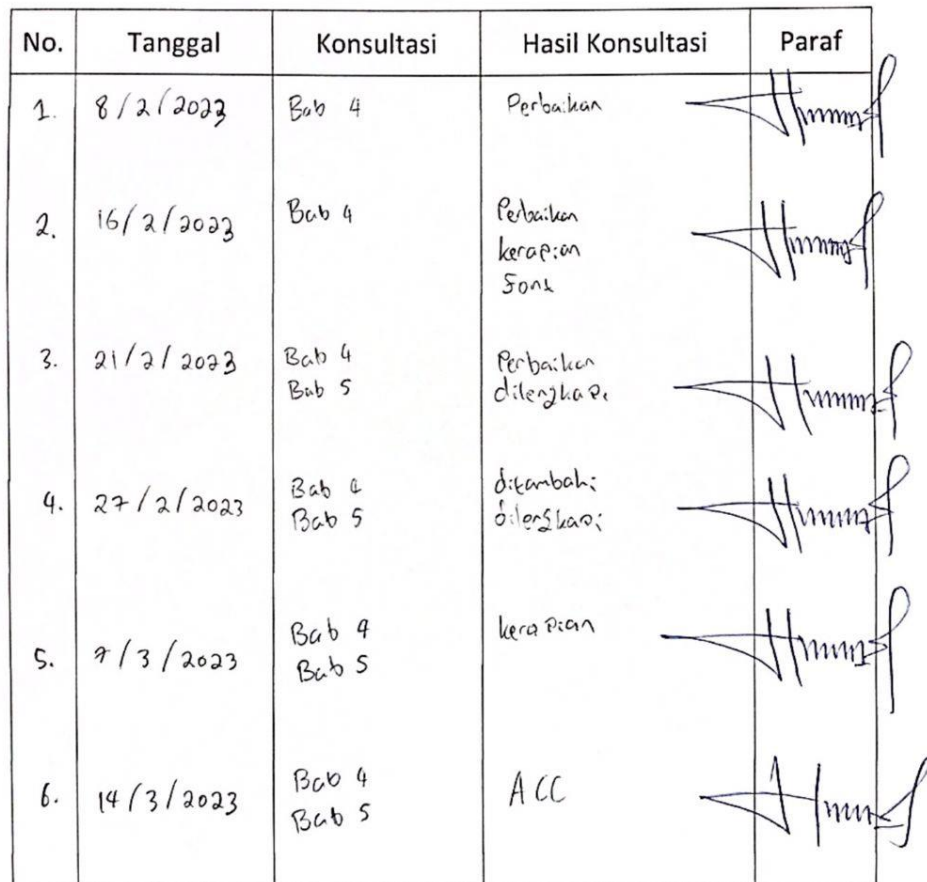 No. Tanggal Konsultasi Hasil Konsultasi Paraf
1. 8/2/2023 Bab 4 Perbaikan
2. 16/2/2023 Bab 4 Perbaikan
kerapian
Font
3. 21/2/2023 Bab 4 Perbaikan
Bab 5 dilengkapi
4. 27/2/2023 Bab 4 ditambahi
Bab 5 dilengkapi
5. 7/3/2023 Bab 4 kerapian
Bab 5
6. 14/3/2023 Bab 4 ACC
Bab 5